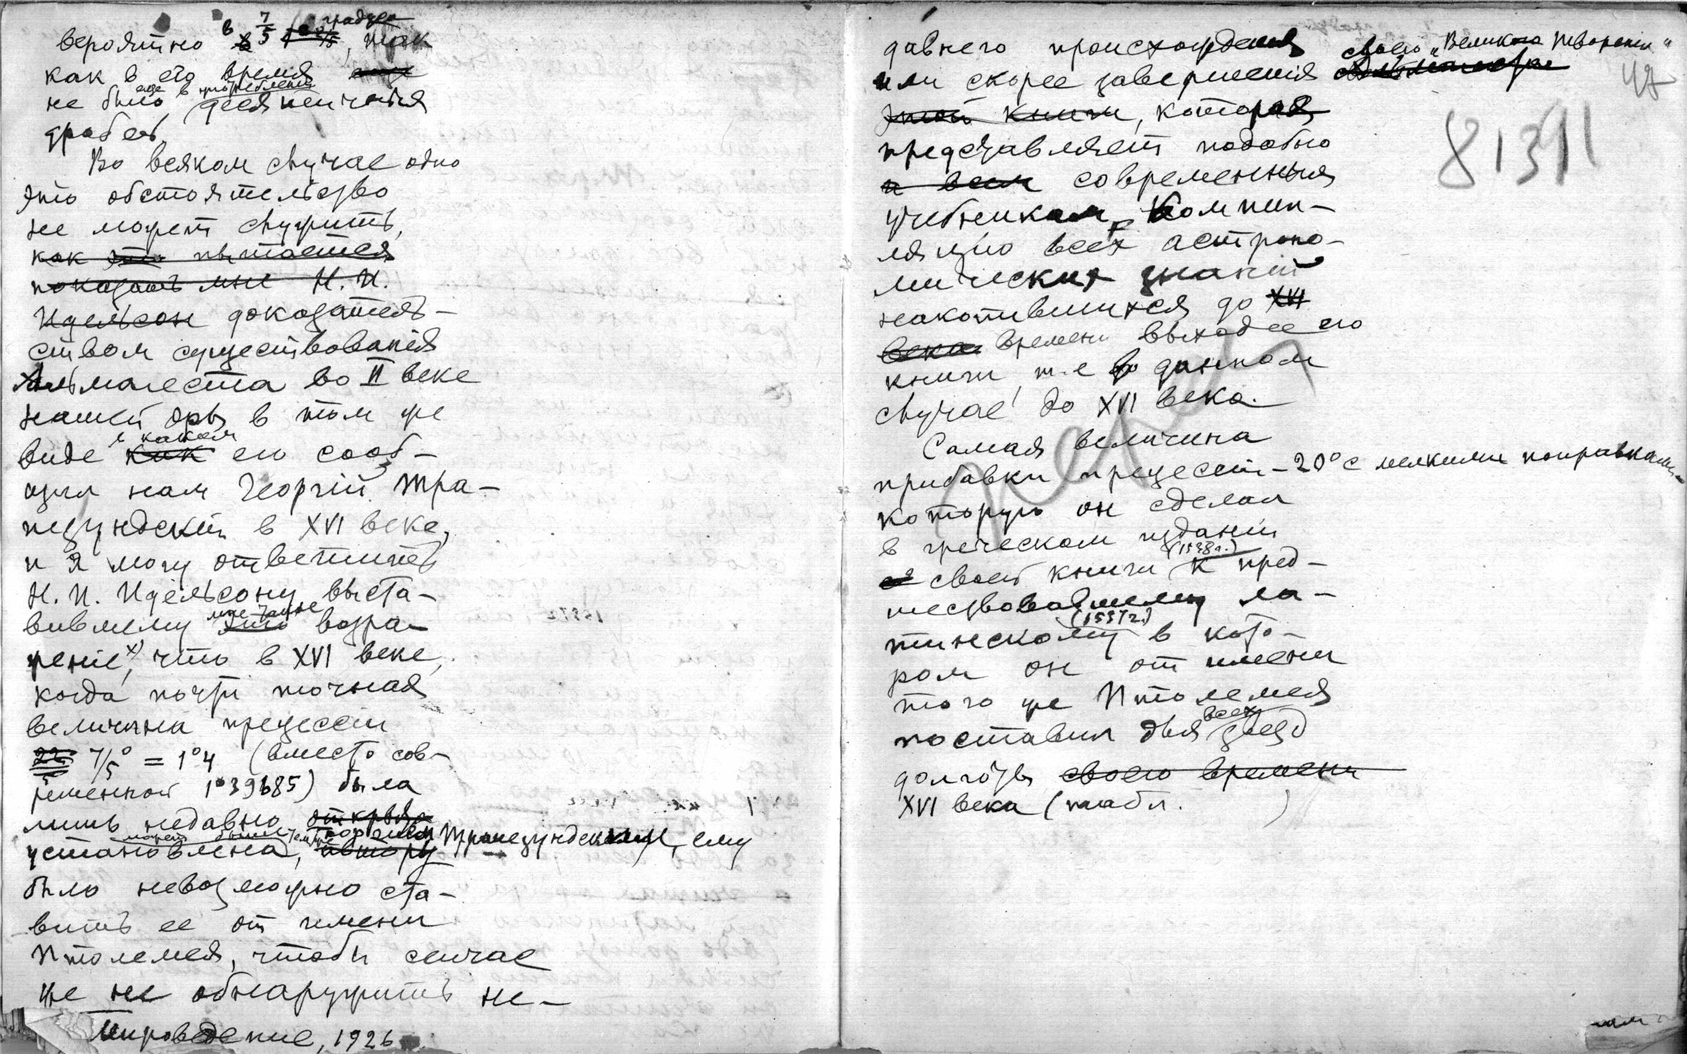 вероятно в 7/5 градуса, так
как в его время
не было еще в употреблении десятичных
дробей
Во всяком случае одно
это обстоятельство
не может служить,
как это пытается
показать мне Н. И.
Идельсон доказатель-
ством существования
Альмагеста во II веке
нашей эры в том же
виде в каком как его сооб-
щил нам Георгий Тра-
пезундский в XVI веке,
и я могу ответить
Н. И. Идельсону, выста-
вившему мне такое это возра-
жение х), что в XVI веке,
когда почти точная
величина прецессии
7/5° = 1°4 (вместо сов-
ременной 1°39685) была
лишь недавно открыта
установлена, может быть тем же Георгием автору Трапезундским, ему
было невозможно ста-
вить ее от имени
Птолемея, чтобы сейчас
же не обнаружить не-
Мироведение, 1926
давнего происхождения
или скорее завершения своего „Великого Творения“
47
этой книги, которая
81391
представляет подобно
и всем современным
учебникам, компил-
ляцию всех астроно-
мических знаний
накопившихся до XVI
века времени выхода ее его
книги, т.е в данном
случае до XVI века.
Самая величина
прибавки прецессии – 20° с мелкими поправками
которую он сделал
в греческом издании
своей книги (1538 г.) к пред-
шествовавшему ла-
тинскому (1537 г.) в кото-
ром он от имени
того же Птолемея
поставил для всех звезд
долготы своего времени
XVI века (табл. )